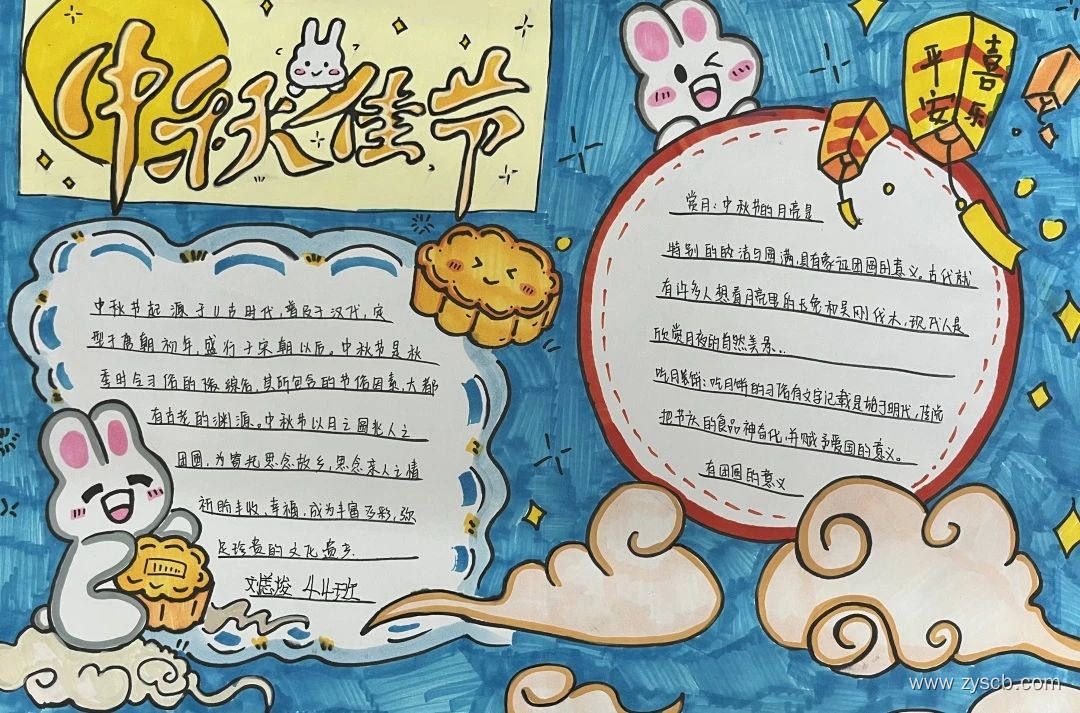 中秋佳节
平安
喜乐
中秋节起源于上古时代，普及于汉代，定
型于唐朝初年，盛行于宋朝以后。中秋节是秋
季时令习俗的综合，其所包含的节俗因素，大都
有古老的渊源。中秋节以月之圆兆人之
团圆，为寄托思念故乡，思念亲人之情
祈盼丰收、幸福，成为丰富多彩，弥
足珍贵的文化遗产.
44班
赏月：中秋节的月亮是
特别的皎洁与圆满，具有象征团圆的意义。古代就
有许多人想看月亮里的玉兔和吴刚伐木，现代人是
欣赏月夜的自然美景..
吃月饼：吃月饼的习俗有文字记载是始于明代，
把节庆的食品神奇化，并赋予爱国的意义。
有团圆的意义
www.zyscb.com